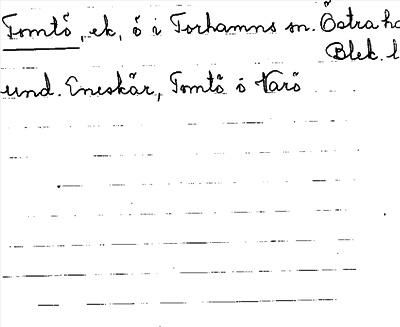 Tomtö, ek, ö i Torhamns sn. Östra ha
Blek. l
und. Eneskär, Tomtö ö Varö